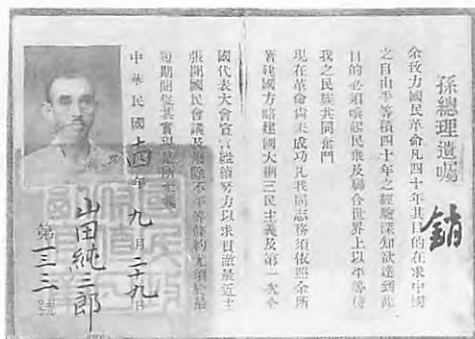 孫總理遺囑
銷
余致力國民革命凡四十年其目的在求中國
之自由平等積四十年之經驗深知欲達到此
目的必須喚起民眾及聯合世界上以平等待
我之民族共同奮鬥
現在革命尚未成功凡我同志務須依照余所
著建國方略建國大綱三民主義及第一次全
國代表大會宣言繼續努力以求貫澈最近主
張開國民會議及廢除不平等條約尤須於最
短期間促其實現是所至囑
中華民國十四年九月二十九日
山田純三郎
第一三三號